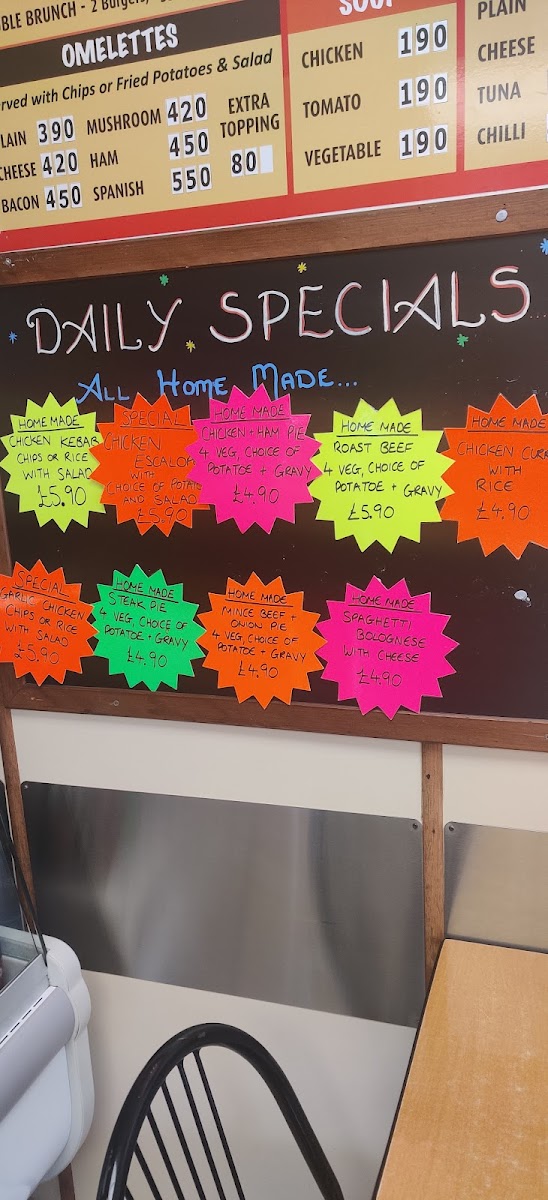 BLE BRUNCH - 2 Burgers,
OMELETTES
erved with Chips or Fried Potatoes & Salad
LAIN 390 MUSHROOM 420 EXTRA TOPPING 80
CHEESE 420 HAM 450
BACON 450 SPANISH 550
SOUP
CHICKEN 190
TOMATO 190
VEGETABLE 190
PLAIN
CHEESE
TUNA
CHILLI
DAILY SPECIALS
ALL HOME MADE...
HOME MADE
CHICKEN KEBAB
CHIPS OR RICE
WITH SALAD
£5.90
SPECIAL
CHICKEN
ESCALOP
WITH
CHOICE OF POTATO
AND SALAD
£5.90
HOME MADE
CHICKEN + HAM PIE
4 VEG, CHOICE OF
POTATOE + GRAVY
£4.90
HOME MADE
ROAST BEEF
4 VEG, CHOICE OF
POTATOE + GRAVY
£5.90
HOME MADE
CHICKEN CURR
WITH
RICE
£4.90
SPECIAL
GARLIC CHICKEN
CHIPS OR RICE
WITH SALAD
£5.90
HOME MADE
STEAK PIE
4 VEG, CHOICE OF
POTATOE + GRAVY
£4.90
HOME MADE
MINCE BEEF +
ONION PIE
4 VEG, CHOICE OF
POTATOE + GRAVY
£4.90
HOME MADE
SPAGHETTI
BOLOGNESE
WITH CHEESE
£4.90